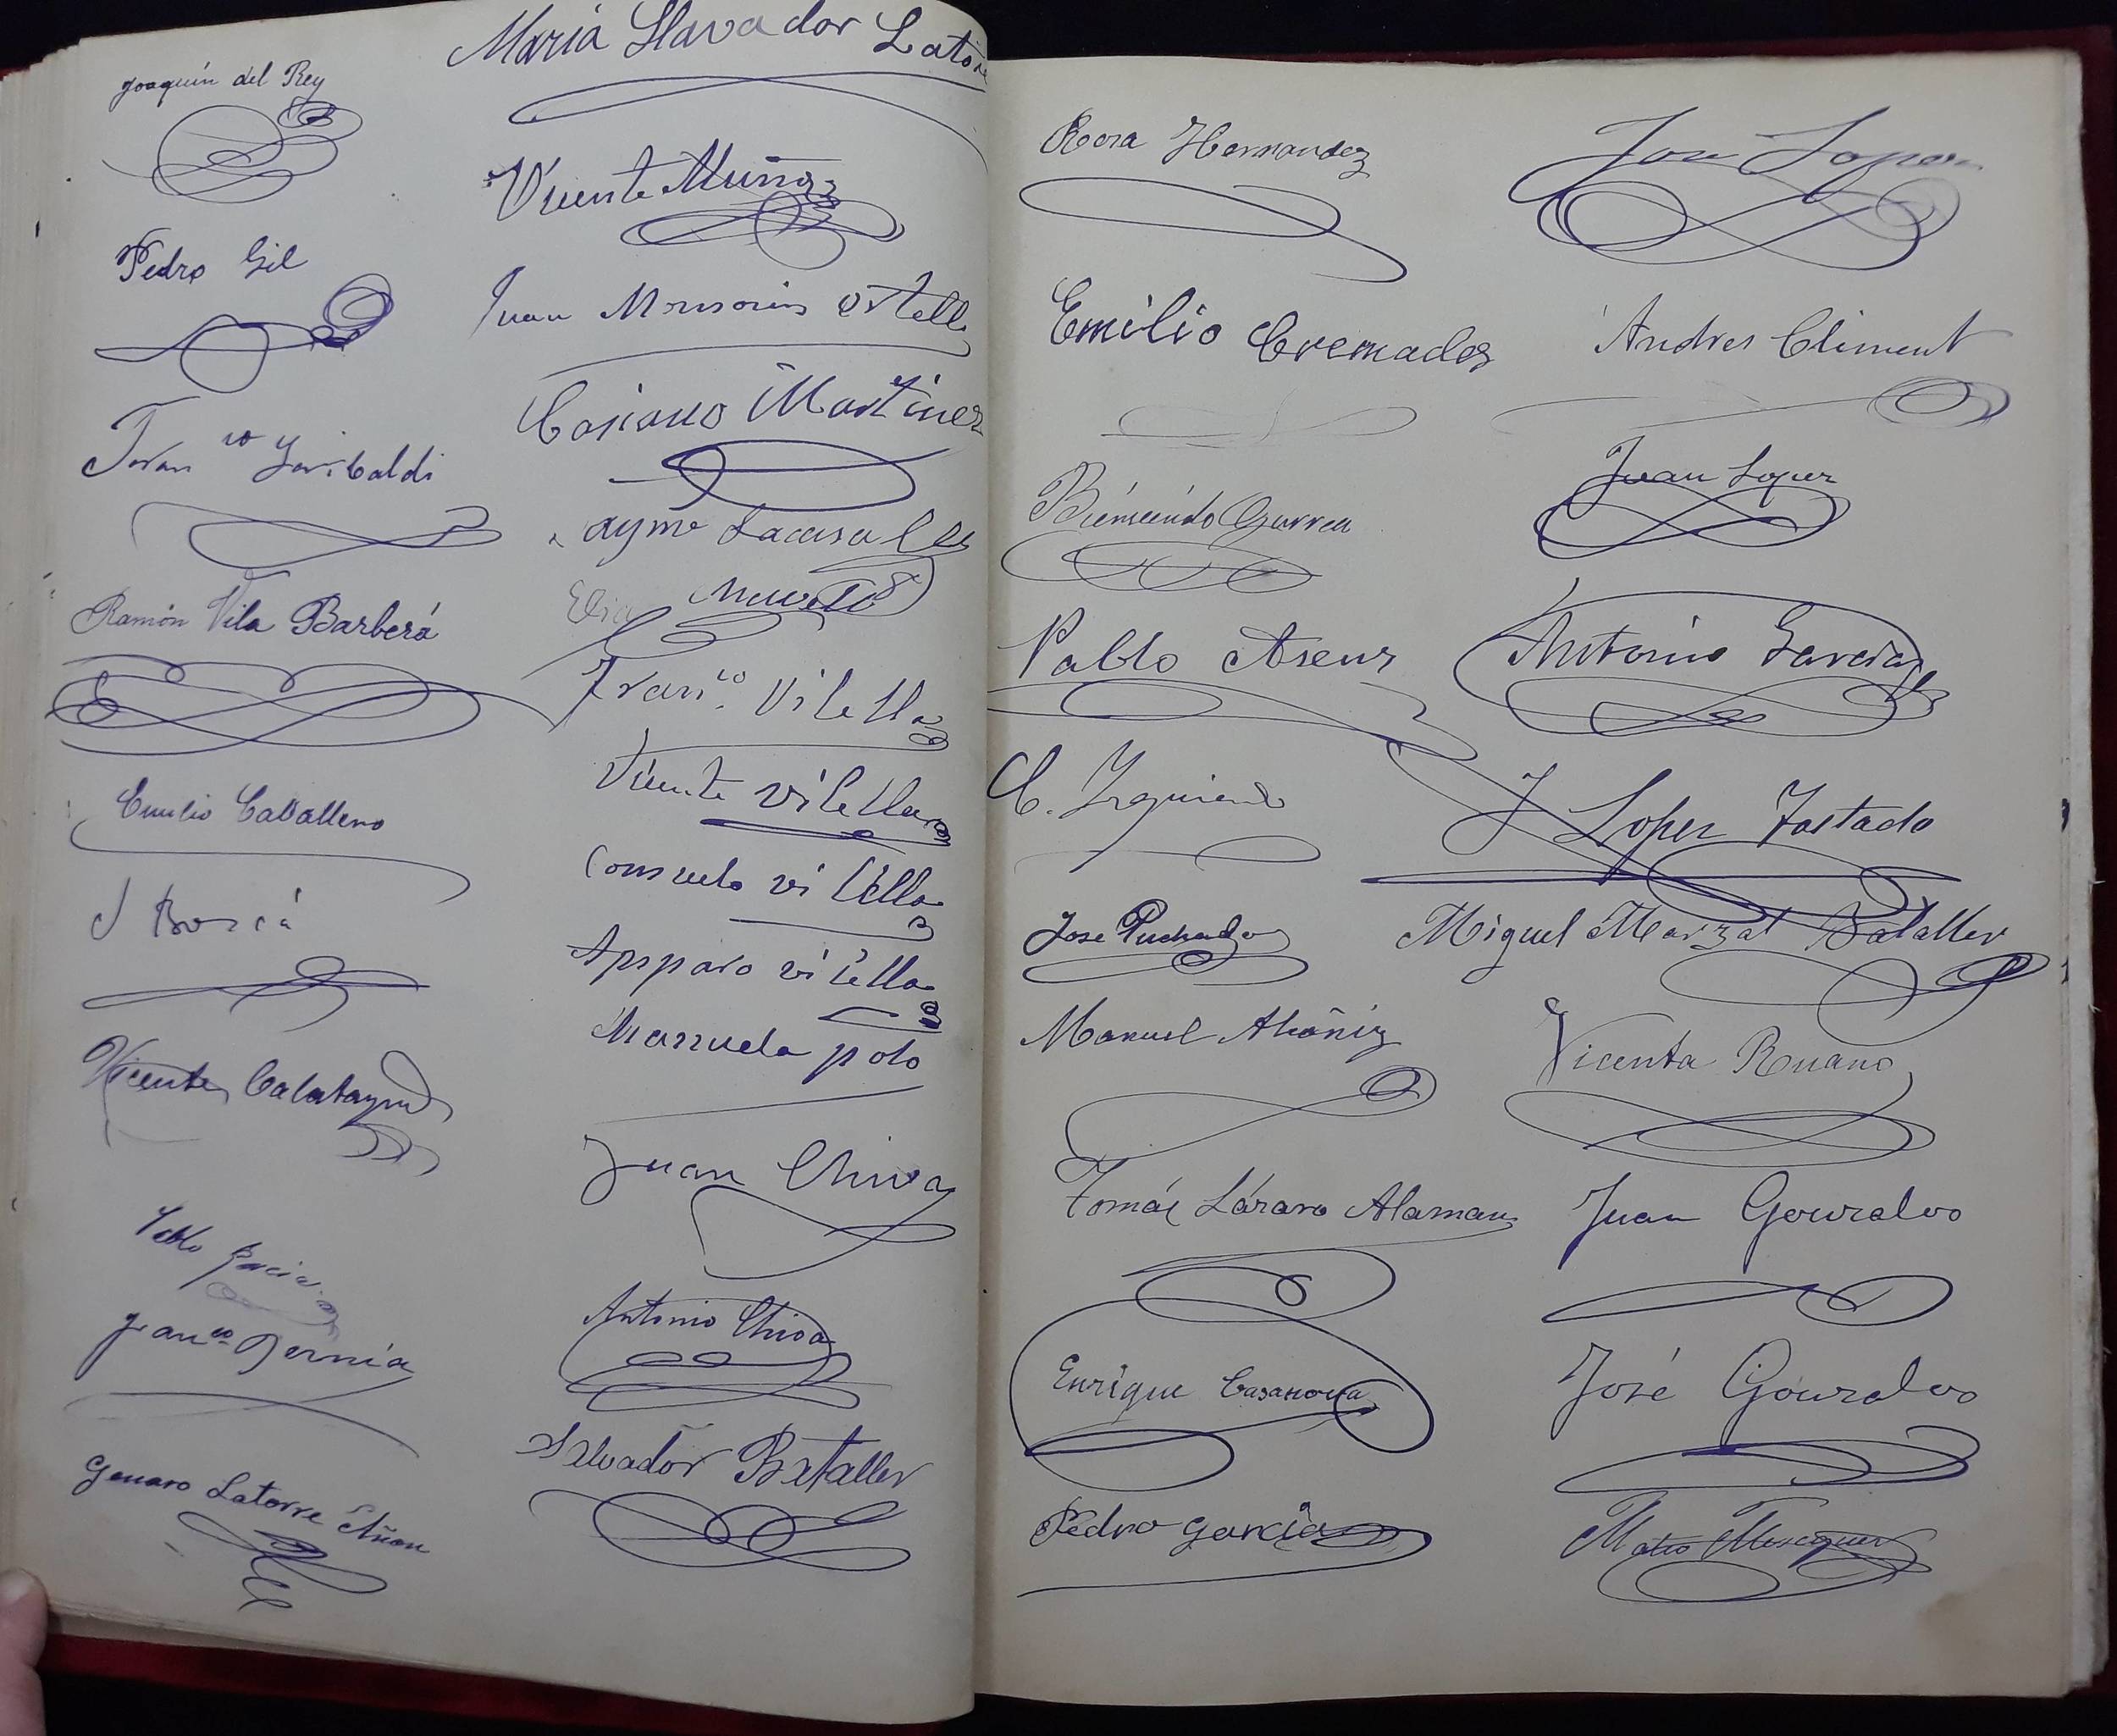 Joaquín del Rey
Pedro Gil
Fran co Garibaldi
Ramón Vila Barberá
Emilio Caballero
J Boscá
Vicente Calatayud
Pablo García
Franco Bernia
Genaro Latorre
María Llavador Latorre
Vicente Muñoz
Juan Monsonis
Casiano Martinez
ayme Lacasa
Elia
Franco. Vilella
Vicente vilella
Consuelo vilella
Apsparo vilella
Manuela polo
Juan Chiva
Antonio Chiva
Salvador Bataller
Rosa Hernandez
Emilio Cremades
Gurrea
Pablo Asenz
C. Izquierdo
Jose Puchades
Manuel
Tomás Lázaro Alaman
Enrique Casanova
Pedro García
Jose Lopez
Andres Climent
Juan Lopez
Antonio Garcia
J Lopez Tostado
Miguel Marzal Bataller
Vicenta Ruano
Juan Gouralvo
José Gouralvo
Mateo